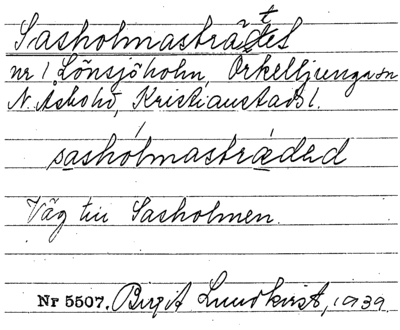 Sasholmasträtet
nr 1 Lönsjöholm, Örkelljunga sn
N. Åsbohd, Kristianstads l.
sashólmastrǽded
Väg till Sasholmen.
Nr 5507. Birgit Lundkvist, 1939.